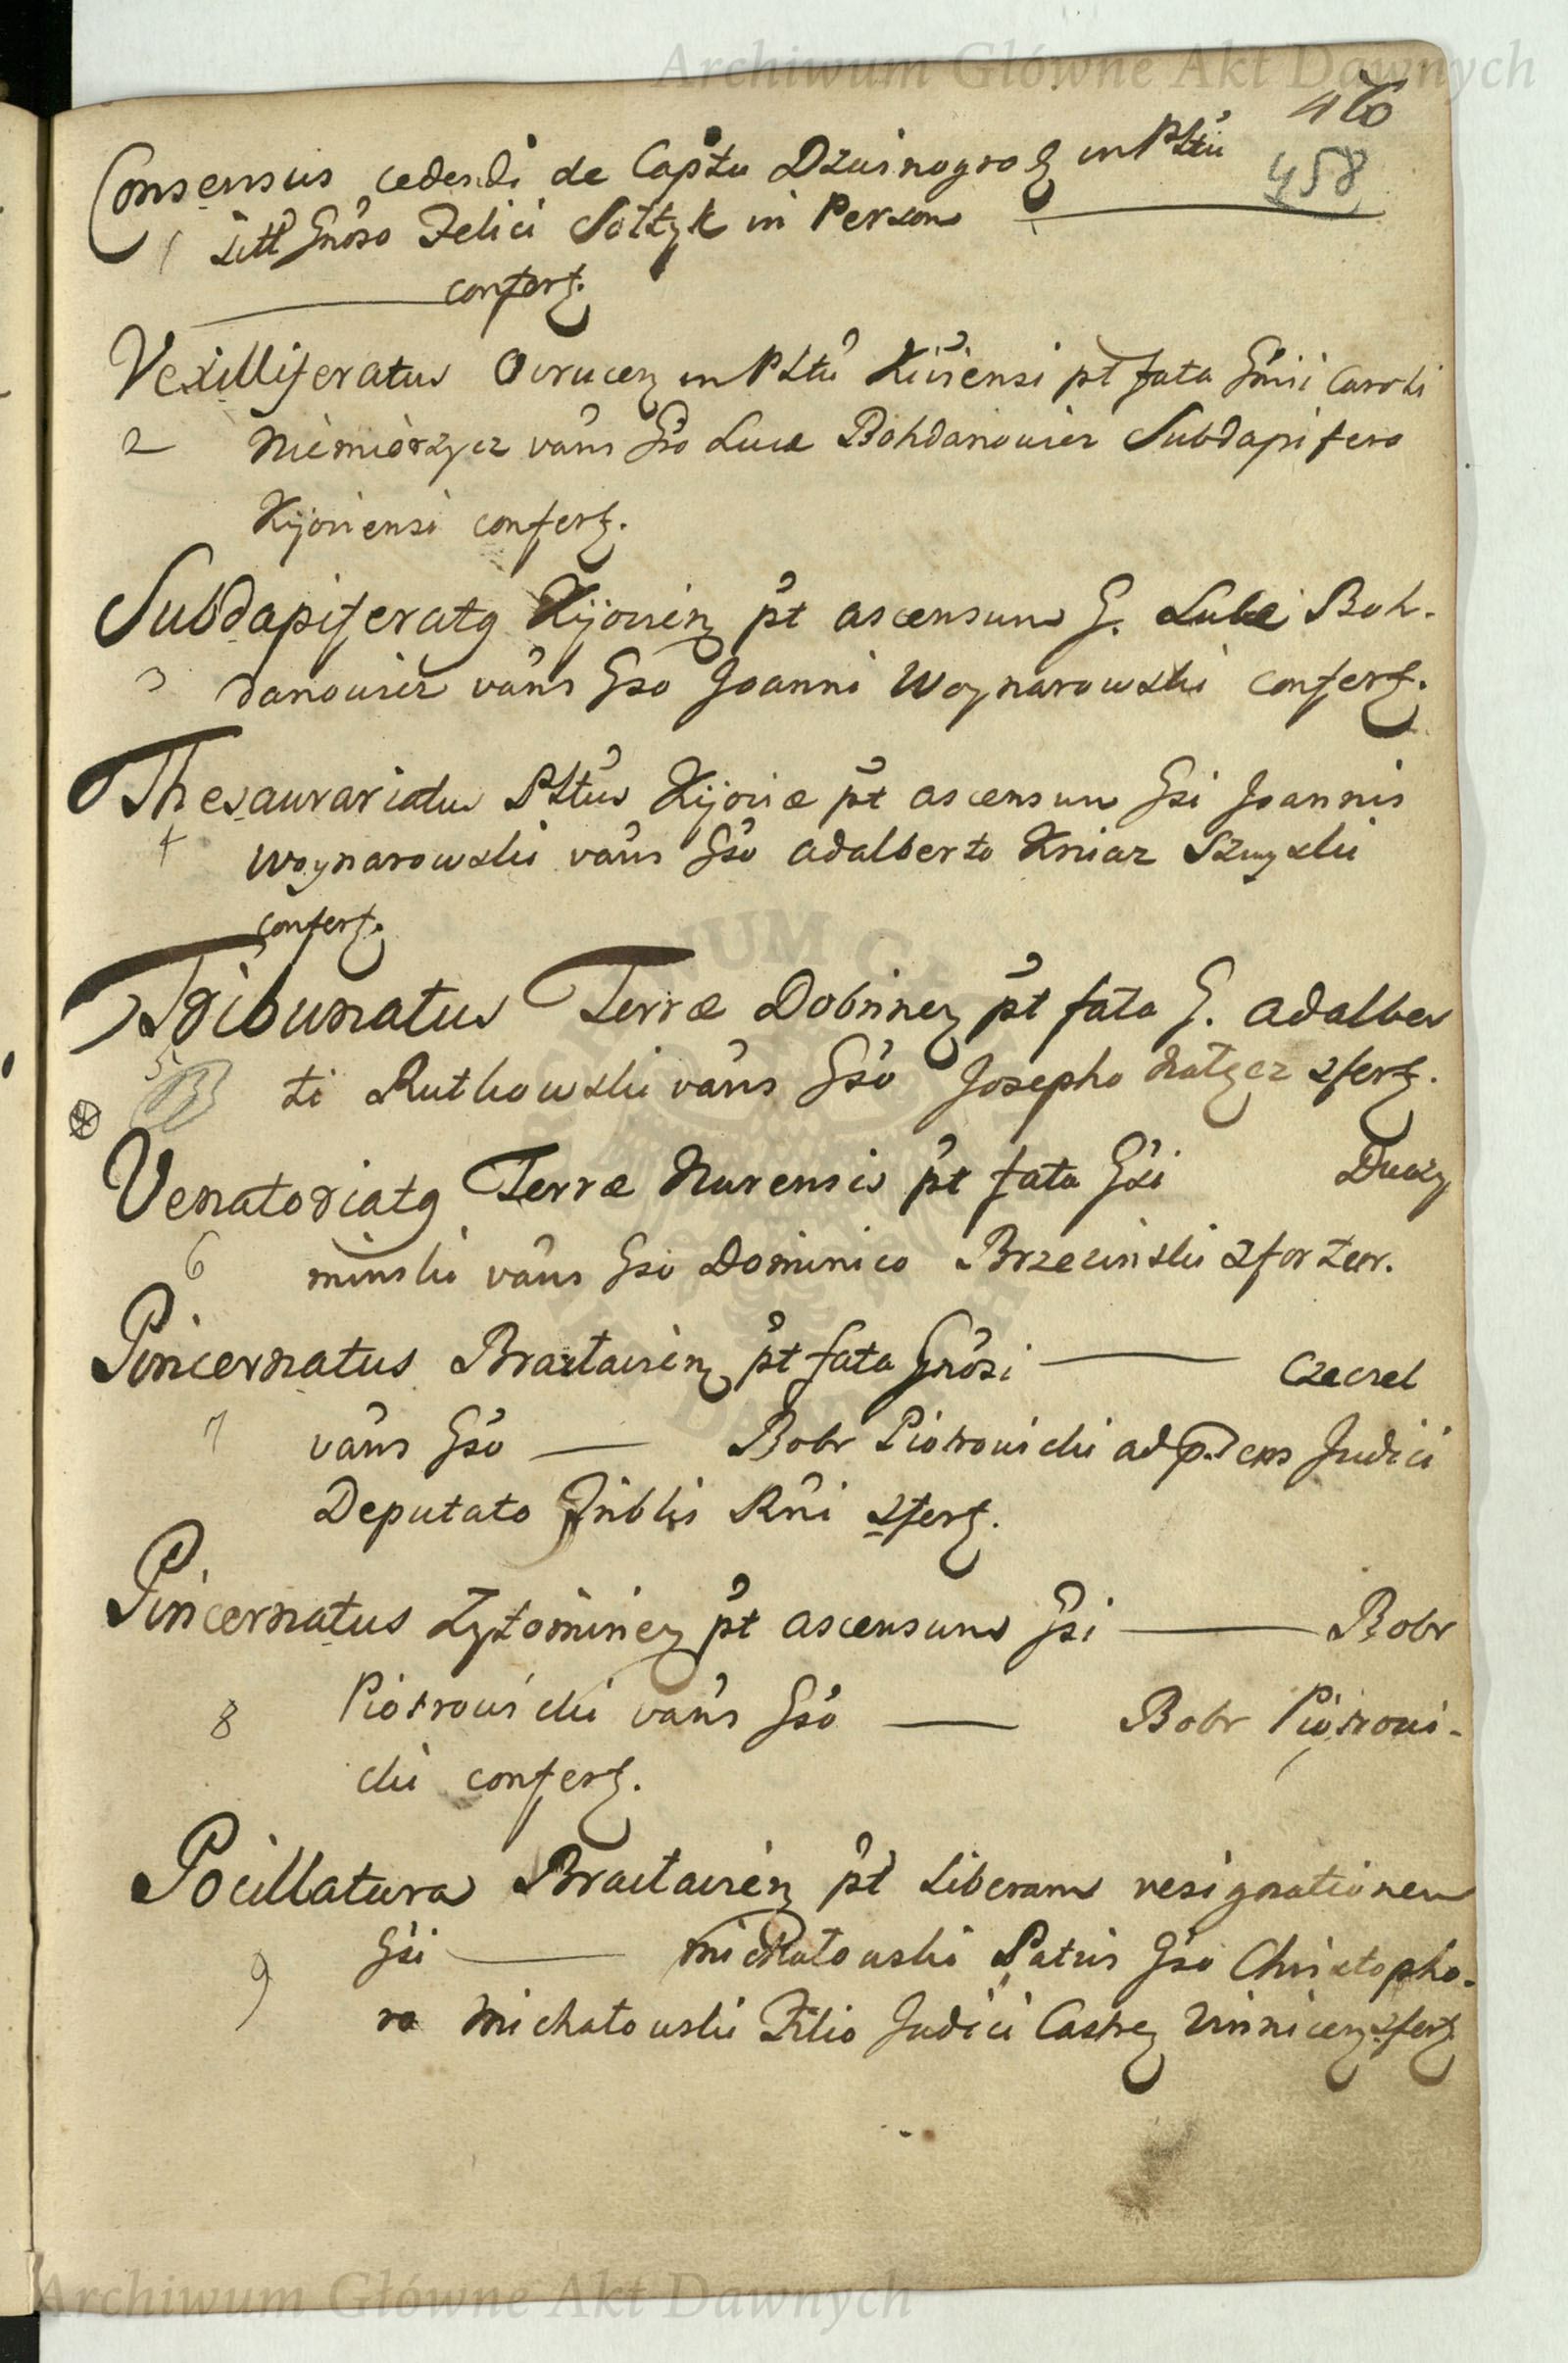 Archiwum Główne Akt Dawnych
476
458
Consensus cedendi de Captu Dzwinogrod in Pltu
1 Gnoso Felici Sołtyk in Person
confert.
Vexilliferatus Ovrucen in Pltu Kiiovensi pt fata Caroli
2 Niemierzycz vans Gso Luca Bohdanowicz Subdapifero
Kijoviensi confert.
Subdapiferatg Kijovien pt ascensum G. Luca Boh-
3 danowicz vans Gso Joanni Woynarowski confert.
Thesaurariatus Pltus Kijoviæ pt ascensum Gsi Joannis
4 Woynarowski vans Gso Adalberto Kniaz Szuyski
confert.
Tribunatus Terræ Dobrinen pt fata G. Adalber
5 ti Rutkowski vans Gso Josepho Nałęcz 2fert.
Venatoriatg Terræ Nurensis pt fata Gsi
6 minski vans Gso Dominico Brzezinski
Pincernatus Braclavien pt fata Gnosi — Czeczel
7 vans Gso — Bobr Piotrowicki ad pdens Judici
Deputato Triblis Rni 2fert.
Pincernatus Zytomirien pt ascensum Gsi — Bobr
8 Piotrowicki vans Gso — Bobr Piotrowi-
cki confert.
Pocillatura Braclavien pt Liberam resignationem
Gsi — Michałowski Patris Gso Christopho-
9 ro Michałowski Filio Judici Castren Vinnicen 2fert
Archiwum Główne Akt Dawnych